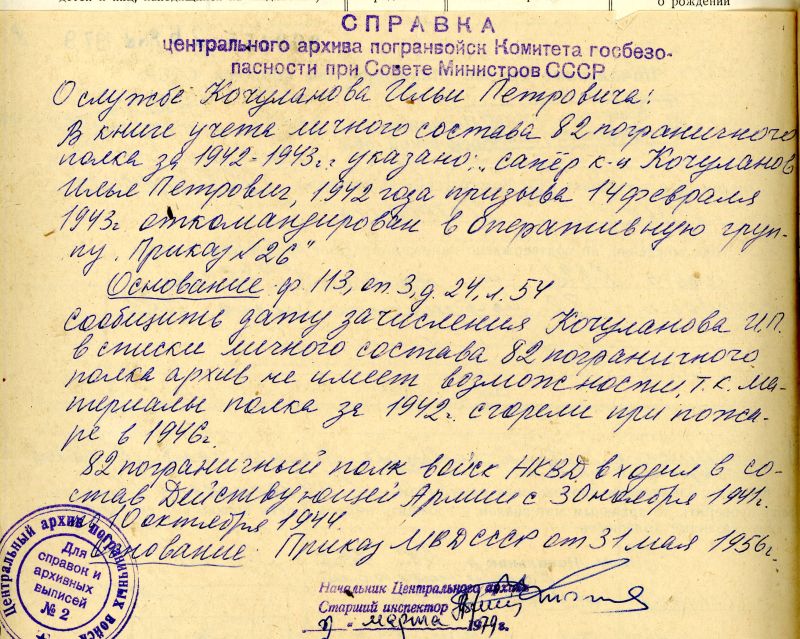 о рождении
СПРАВКА
центрального архива погранвойск Комитета госбезо-
пасности при Совете Министров СССР
О службе Кочуланова Ильи Петровича:
В книге учета личного состава 82 пограничного
полка за 1942-1943 г.г. указано: „сапёр к-ц Кочуланов
Илья Петрович, 1942 года призыва 14 февраля
1943г. откомандирован в оперативную груп-
пу. Приказ №26"
Основание ф. 113, оп. 3, д. 24, л. 54
сообщить дату зачисления Кочуланова И.П.
в списки личного состава 82 пограничного
полка архив не имеет возможности, т.к. ма-
териалы полка за 1942г. сгорели при пожа-
ре в 1946г.
82 пограничный полк войск НКВД входил в со-
став Действующей Армии с 30 ноября 1941г.
10 октября 1944
Основание. Приказ МВД СССР от 31 мая 1956г.
Центральный архив пограничных войск
Для
справок и
архивных
выписей
№ 2
Начальник Центрального архива
Старший инспектор
марта 1979г.